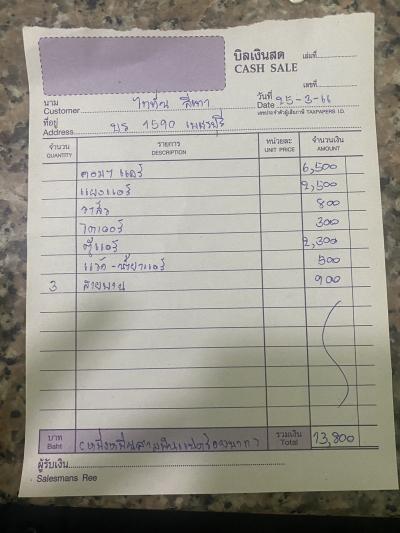 บิลเงินสด เล่มที่
CASH SALE
เลขที่
นาม ไทก้น สีเทา วันที่ 25-3-66
Customer Date
ที่อยู่ บร 1590 เพชรบุรี เลขประจำตัวผู้เสียภาษี TAXPAPERS I.D.
Address
จำนวน รายการ หน่วยละ จำนวนเงิน
QUANTITY DESCRIPTION UNIT PRICE AMOUNT
คอมฯ แอร์ 6,500
แผงแอร์ 2,500
วาล์ว 800
ไดเออร์ 300
ตู้แอร์ 2,300
แวค-น้ำยาแอร์ 500
3 สายพาน 900
บาท (หนึ่งหมื่นสามพันแปดร้อยบาท) รวมเงิน 13,800
Baht Total
ผู้รับเงิน
Salesmans Ree